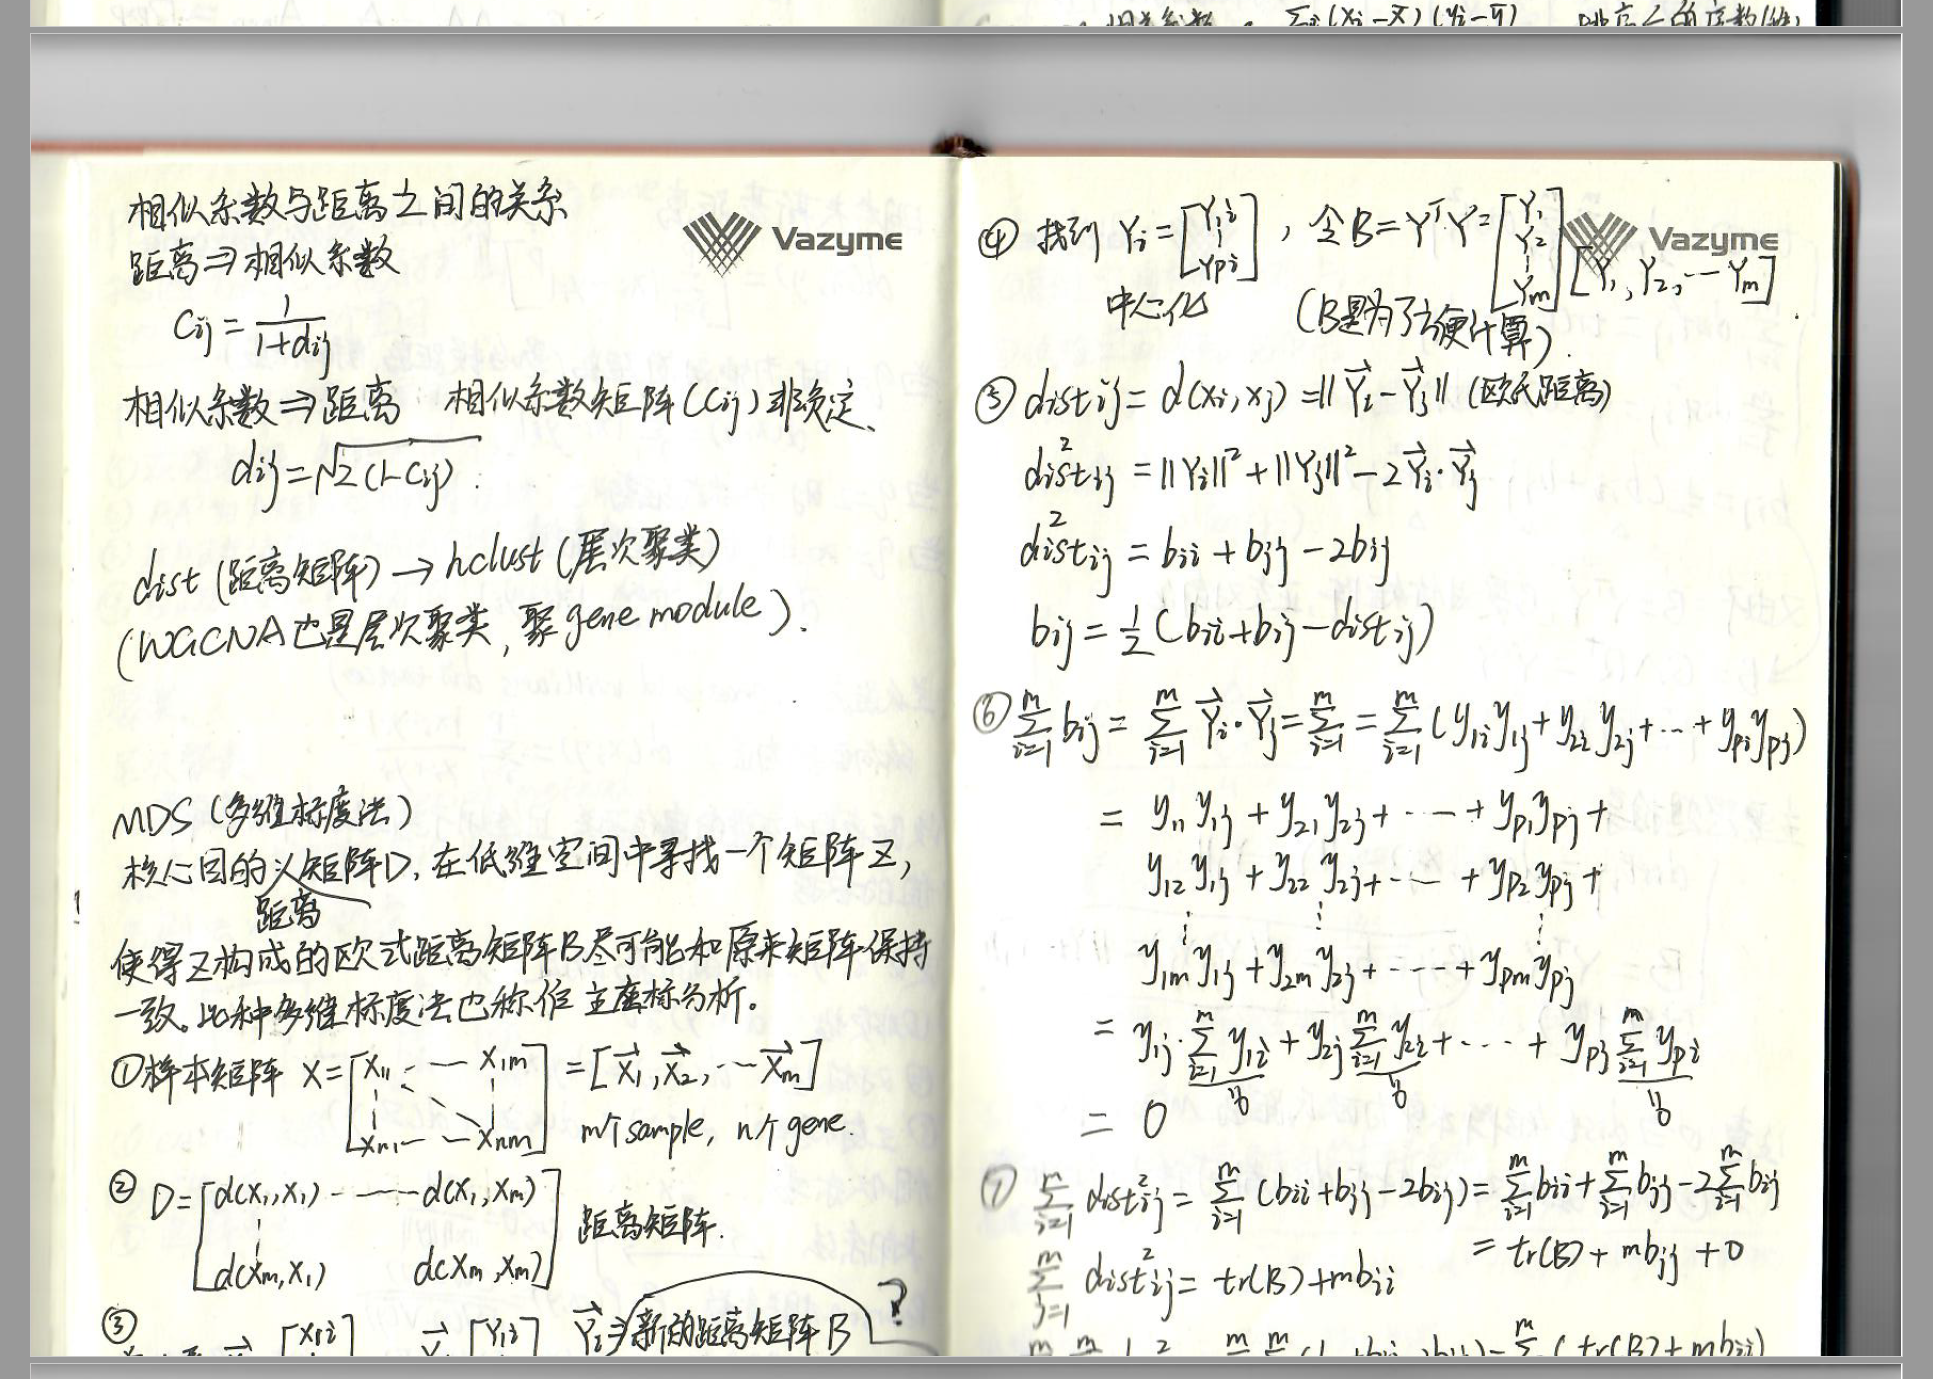 相似系数与距离之间的关系
距离⇒相似系数
Cij = 1/(1+dij)
相似系数⇒距离 相似系数矩阵(Cij)非负定、
dij=√2(1-Cij).
dist (距离矩阵) → hclust (层次聚类)
(WGCNA也是层次聚类, 聚gene module).
MDS (多维标度法)
核心目的 以矩阵D, 在低维空间中寻找一个矩阵Z,
距离
使得Z构成的欧式距离矩阵B尽可能和原来矩阵保持
一致。此种多维标度法也称作主座标分析。
①样本矩阵 X=[X11 ·— X1m ¦ Xn1 — — Xnm] = [X⃗1, X⃗2, ··· X⃗m]
m个sample, n个gene.
② D=[d(X1,X1) ------ d(X1,Xm) ¦ d(Xm,X1) d(Xm,Xm)] 距离矩阵.
③
[X1i [Y1i Y⃗i⇒新的距离矩阵B ?
Vazyme
④ 找到 Yi = [Y1i ¦ Ypi] , 令B=YᵀY=[Y1 Y2 ¦ Ym] [Y1, Y2, --- Ym].
Vazyme
中心化 (B是为了方便计算).
⑤ distij = d(xi,xj) =‖Y⃗i-Y⃗j‖ (欧氏距离)
dist²ij = ‖Yi‖²+‖Yj‖²-2Y⃗i·Y⃗j
dist²ij = bii + bjj - 2bij
bij = ½ (bii+bjj-distij)
⑥ Σ(i=1,m) bij = Σ(i=1,m) Y⃗i·Y⃗j = Σ(i=1,m) = Σ(i=1,m) (y1iy1j+y2iy2j+···+ypiypj)
= y11y1j + y21y2j + ····· + yp1ypj +
y12y1j + y22y2j + ····· + yp2ypj +
y1my1j + y2my2j + ····· + ypmypj
= y1j·Σ(i=1,m) y1i + y2jΣ(i=1,m) y2i + ····· + ypjΣ(i=1,m) ypi
0 0 0
= 0
⑦ Σ(i=1,m) dist²ij = Σ(i=1,m) (bii+bjj-2bij) = Σ(i=1,m) bii + Σ(i=1,m) bjj - 2Σ(i=1,m) bij
= tr(B) + mbjj + 0
Σ(j=1,m) dist²ij = tr(B)+mbii